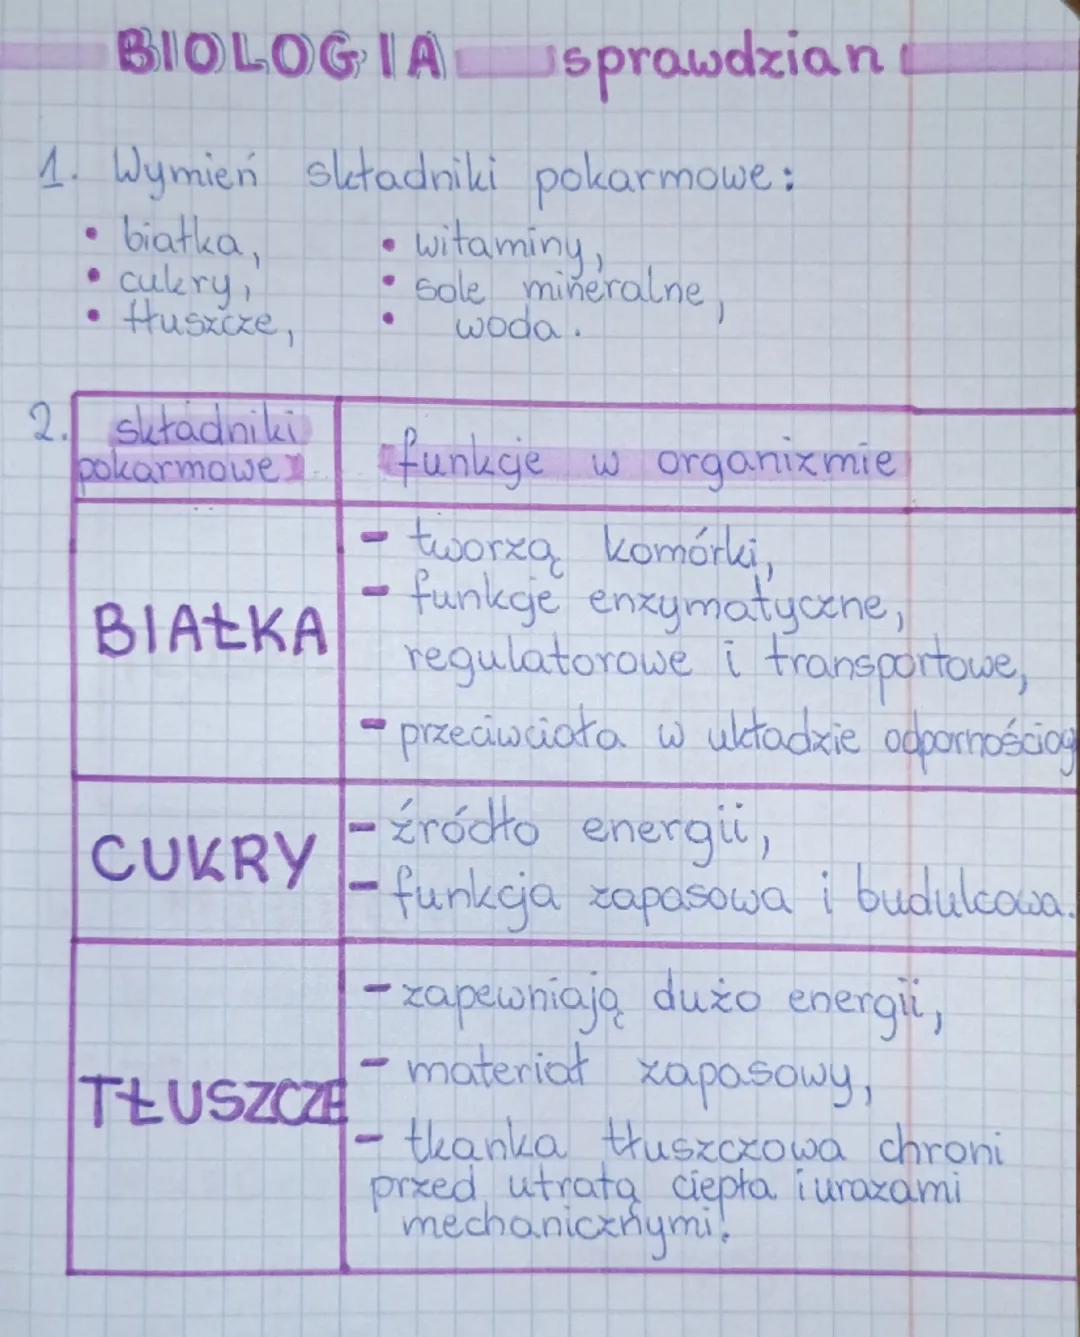 BIOLOGIA sprawdzian
1. Wymień składniki pokarmowe:
• białka,
• cukry,
• tłuszcze,
• witaminy,
• sole mineralne,
• woda.
2. składniki pokarmowe
funkcje w organizmie
BIAŁKA
- tworzą komórki,
- funkcje enzymatyczne,
regulatorowe i transportowe,
- przeciwciała w układzie
CUKRY
- źródło energii,
- funkcja zapasowa i budulcowa.
TŁUSZCZE
- zapewniają dużo energii,
- materiał zapasowy,
- tkanka tłuszczowa chroni
przed utratą ciepła i urazami
mechanicznymi.